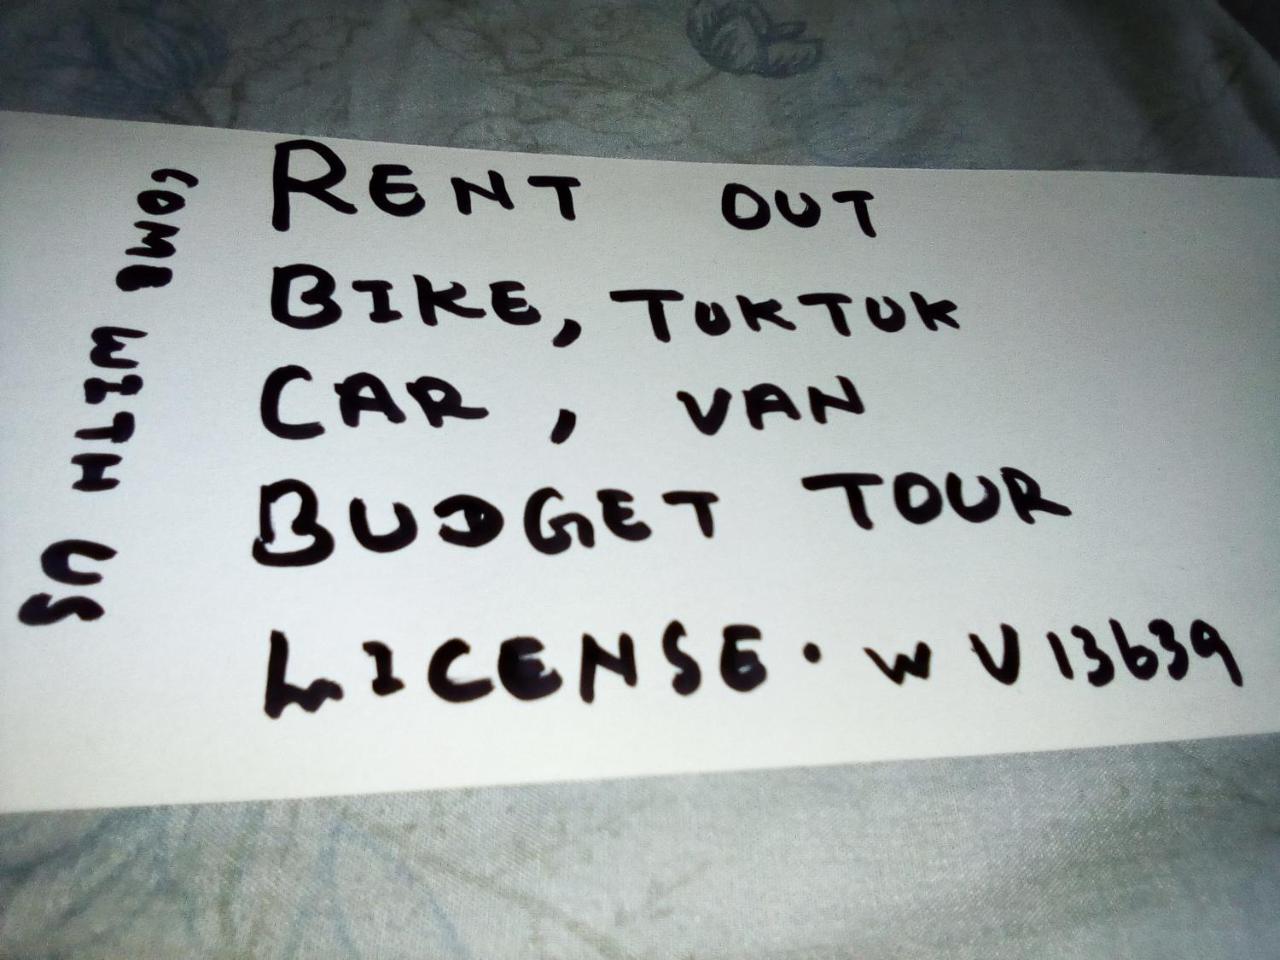 COME WITH US
RENT OUT
BIKE, TUKTUK
CAR, VAN
BUDGET TOUR
LICENSE. W V13639